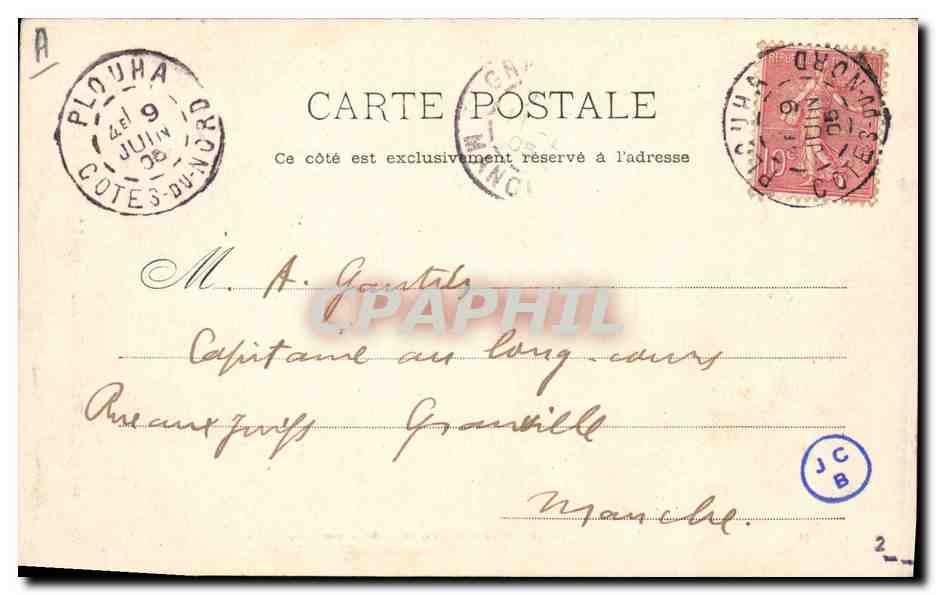 A
PLOUHA
4E 9
JUIN
05
COTES-DU-NORD
GRA
05
MANCH
PLOUHA
9
JUIN
05
COTES-DU-NORD
10c
CARTE POSTALE
Ce côté est exclusivement réservé à l'adresse
M. A.
CPAPHIL
Capitaine au long-cours
Rue aux Juifs Granville
Manche.
J C B
2